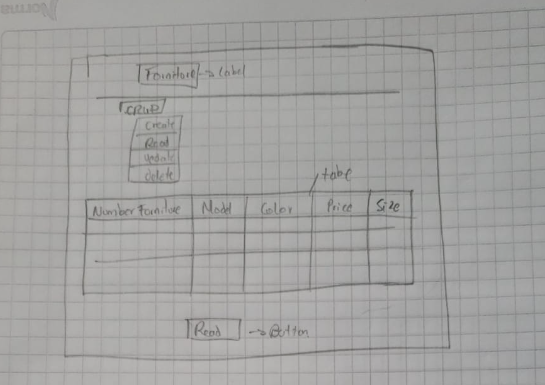 Forniture -> Label
CRUD
Create
Read
Update
delete
table
Number Forniture Model Color Price Size
Read -> Button